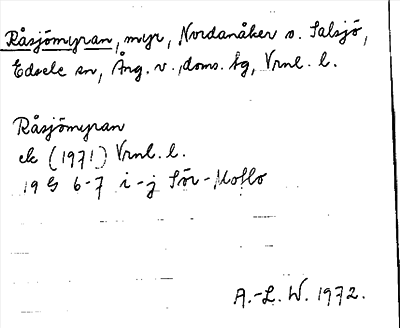 Råsjömyran, myr, Nordanåker o. Salsjö,
Edsele sn, Ång. v. doms. tg, Vrnl. l.
Råsjömyran
ek (1971) Vrnl. l.
19 G 6-7 i-j Sör-Moflo
A.-L. W. 1972.